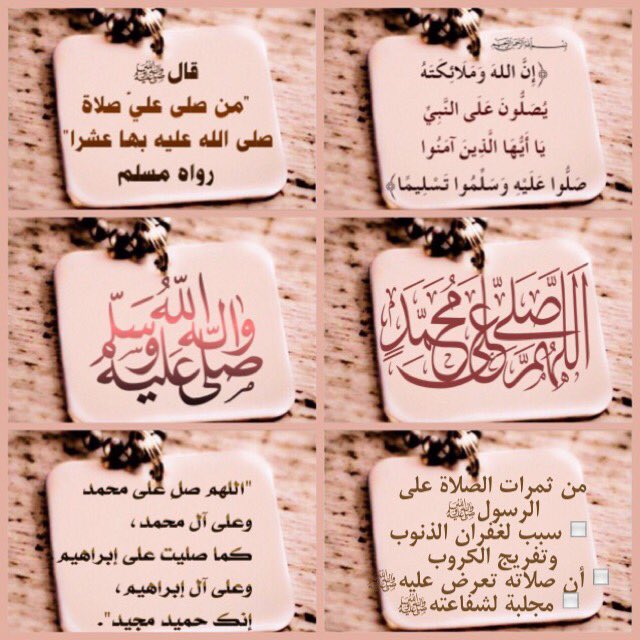 بسم الله الرحمن الرحيم
﴿إِنَّ اللهَ وَمَلَائِكَتَهُ
يُصَلُّونَ عَلَى النَّبِيِّ
يَا أَيُّهَا الَّذِينَ آمَنُوا
صَلُّوا عَلَيْهِ وَسَلِّمُوا تَسْلِيمًا﴾
قال ﷺ
"من صلى عليّ صلاة
صلى الله عليه بها عشرا"
رواه مسلم
اَللّهُمَّ صَلِّ عَلَى مُحَمَّدٍ
صلى الله عليه وآله وسلم
من ثمرات الصلاة على
الرسول ﷺ
سبب لغفران الذنوب
وتفريج الكروب
أن صلاته تعرض عليه ﷺ
مجلبة لشفاعته ﷺ
"اللهم صل على محمد
وعلى آل محمد،
كما صليت على إبراهيم
وعلى آل إبراهيم،
إنك حميد مجيد".